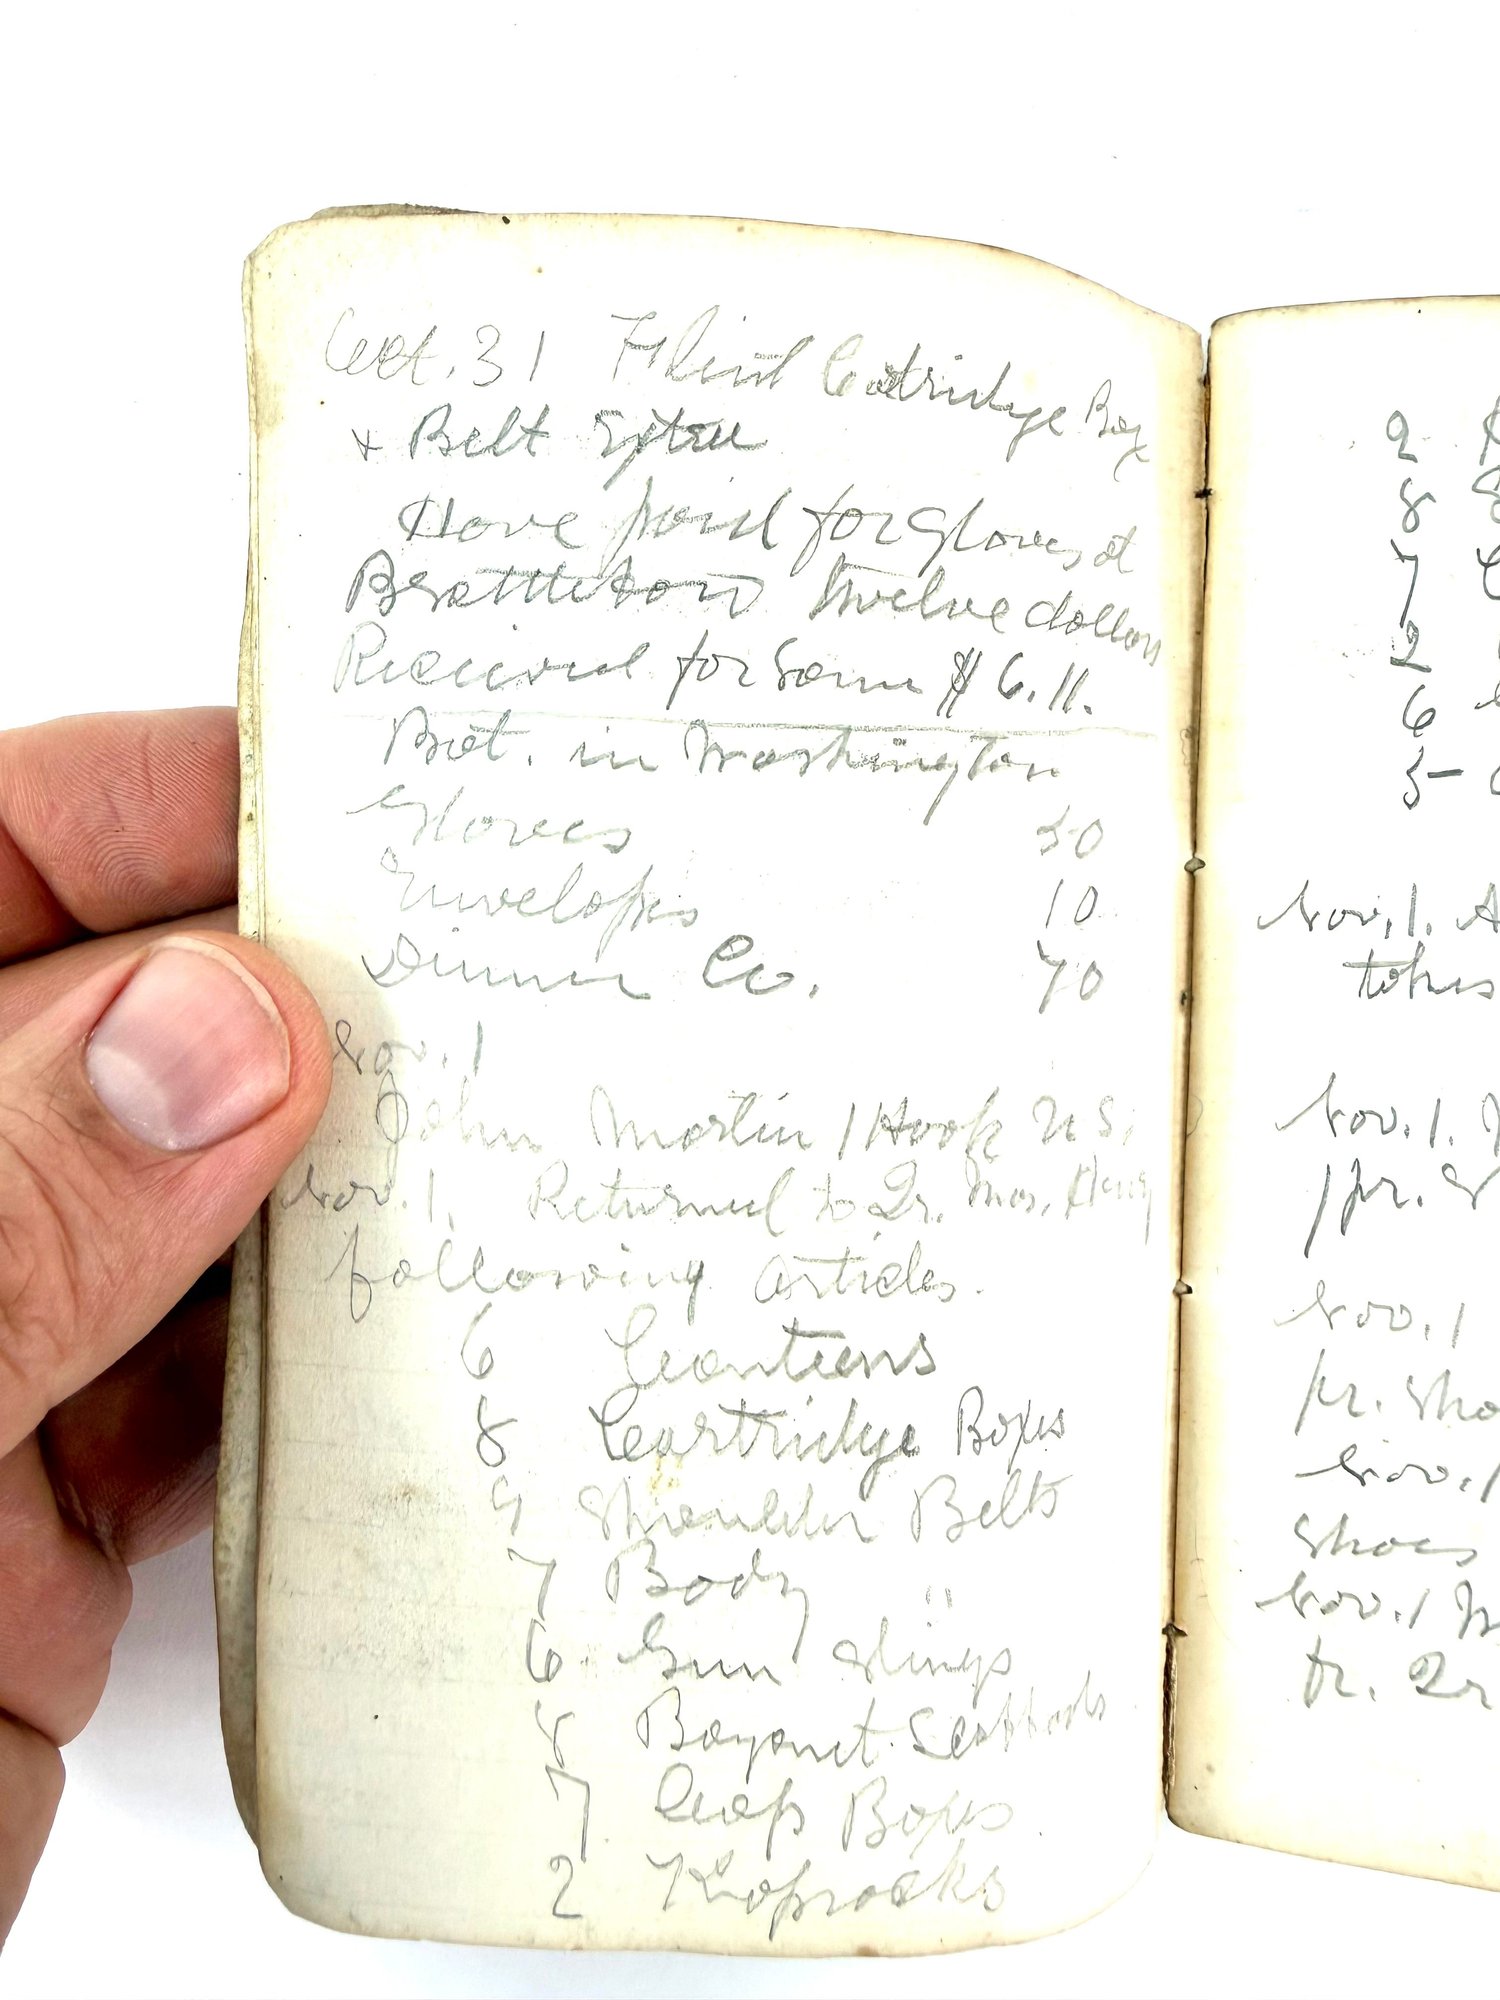 Oct. 31 Flint Catridge Box
+ Belt Extra
Have paid for Gloves at
Brattleboro Twelve dollars
Received for Same $6.11.
Bot. in Washington
Gloves 50
Envelopes 10
Dinner Co. 70
Nov. 1
John Martin 1 Hook U S.
Nov. 1. Returned to Qr. Mas.
following articles.
6 Canteens
8 Cartridge Boxes
9 Shoulder Belts
7 Body "
6. Gun Slings
8 Bayonet Scabbards
7 Cap Boxes
2 Knapsacks
2
8
7
2
6
5
Nov. 1. A
takes
Nov. 1.
1 pr. S
Nov. 1
pr. Sho
Nov. 1
Shoes
Nov. 1
to. Qr